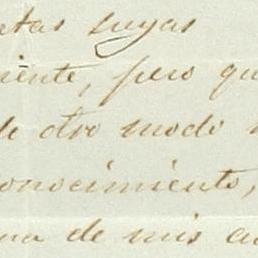 etas suyas
iente, pero qu
de otro modo
onocimiento,
na de mis